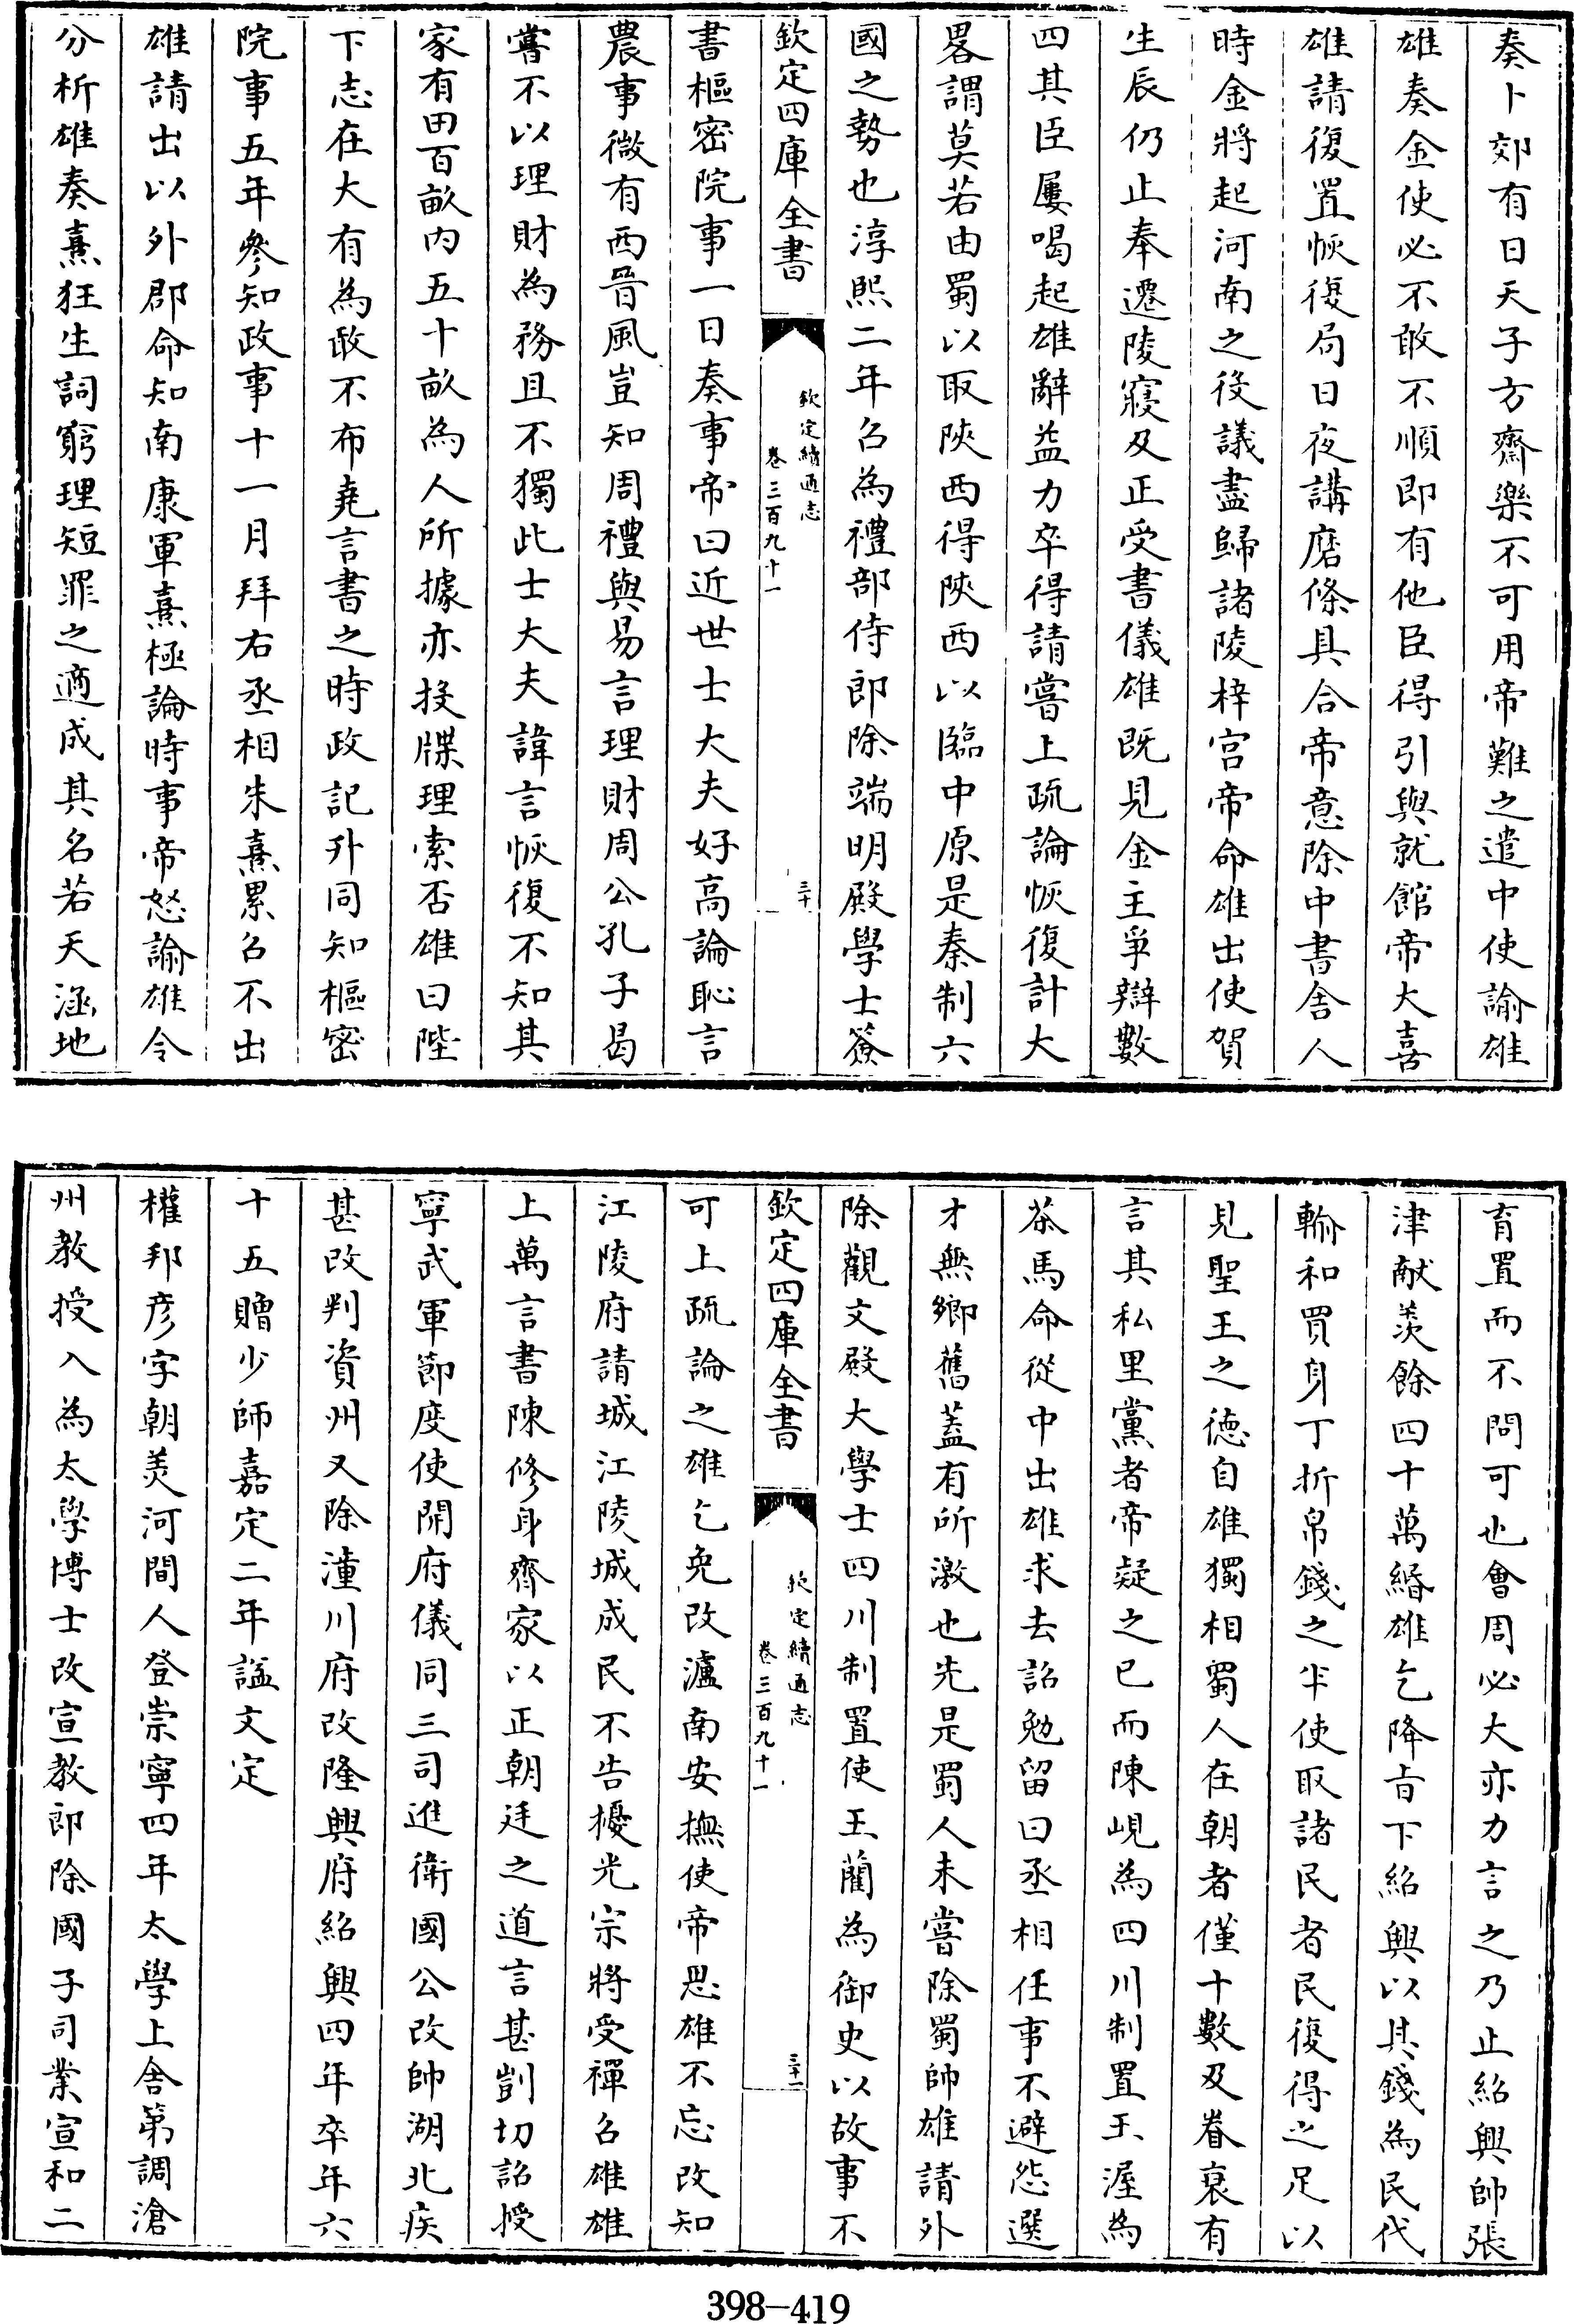 奏卜郊有日天子方齋樂不可用帝難之遣中使諭雄
雄奏金使必不敢不順即有他臣得引與就館帝大喜
雄請復置恢復局日夜講磨條具合帝意除中書舍人
時金將起河南之役議盡歸諸陵梓宫帝命雄出使賀
生辰仍止奉遷陵寢及正受書儀雄既見金主爭辯數
四其臣屢喝起雄辭益力卒得請嘗上疏論恢復計大
畧謂莫若由蜀以取陝西得陝西以臨中原是秦制六
國之勢也淳熙二年召為禮部侍郎除端明殿學士簽
欽定四庫全書
欽定續通志
卷三百九十一
三十
書樞密院事一日奏事帝曰近世士大夫好高論恥言
農事微有西晉風豈知周禮與易言理財周公孔子曷
嘗不以理財為務且不獨此士大夫諱言恢復不知其
家有田百畝内五十畝為人所據亦投牒理索否雄曰陛
下志在大有為敢不布堯言書之時政記升同知樞密
院事五年參知政事十一月拜右丞相朱熹累召不出
雄請出以外郡命知南康軍熹極論時事帝怒諭雄令
分析雄奏熹狂生詞窮理短罪之適成其名若天涵地
育置而不問可也會周必大亦力言之乃止紹興帥張
津獻羡餘四十萬緡雄乞降㫖下紹興以其錢為民代
輸和買身丁折帛錢之半使取諸民者民復得之足以
見聖王之德自雄獨相蜀人在朝者僅十數及眷衰有
言其私里黨者帝疑之已而陳峴為四川制置王渥為
茶馬命從中出雄求去詔勉留曰丞相任事不避怨選
才無鄉舊蓋有所激也先是蜀人未嘗除蜀帥雄請外
除觀文殿大學士四川制置使王藺為御史以故事不
欽定四庫全書
欽定續通志
卷三百九十一
三十一
可上疏論之雄乞免改瀘南安撫使帝思雄不忘改知
江陵府請城江陵城成民不告擾光宗將受禪召雄雄
上萬言書陳修身齊家以正朝廷之道言甚剴切詔授
寧武軍節度使開府儀同三司進衛國公改帥湖北疾
甚改判資州又除潼川府改隆興府紹興四年卒年六
十五贈少師嘉定二年諡文定
權邦彥字朝美河間人登崇寧四年太學上舍第調滄
州教授入為太學博士改宣教郎除國子司業宣和二
398-419